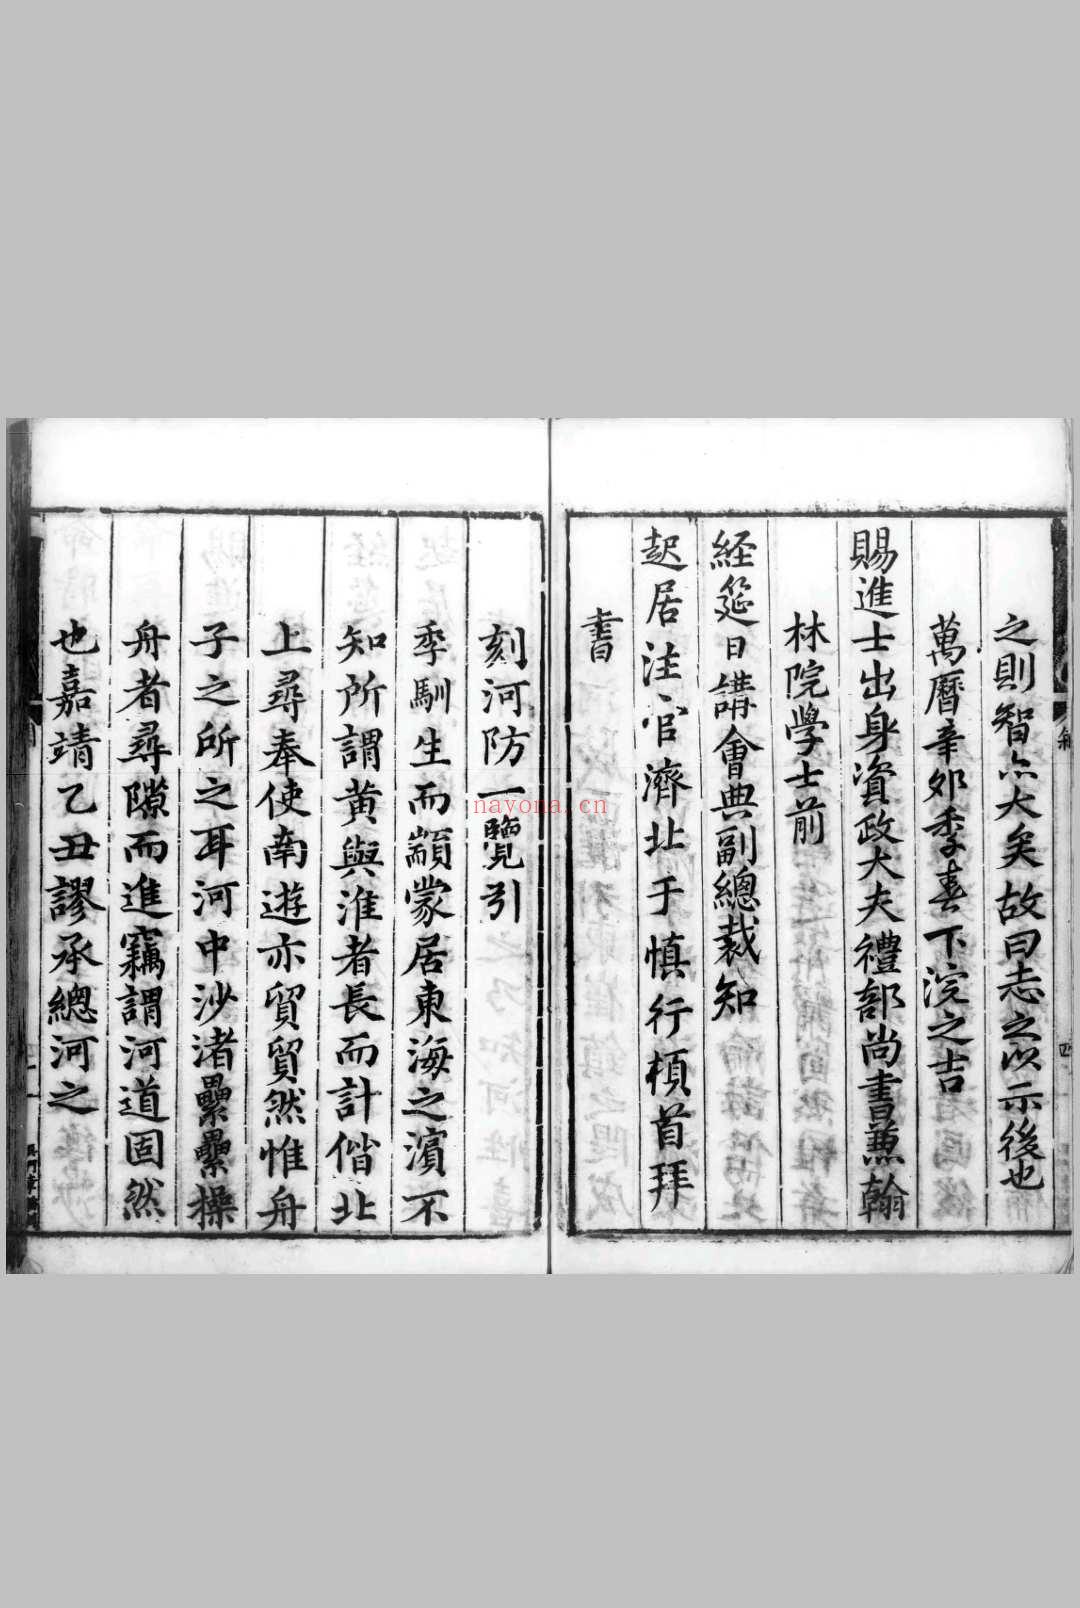 之則智亦大矣故曰志之以示後也
萬曆辛卯季春下浣之吉
賜進士出身資政大夫禮部尚書蕪翰
林院學士前
経筵日講會典副總裁知
起居注官濟北于慎行頓首拜
書
刻河防一覽引
季馴生而顓蒙居東海之濱不
知所謂黃與淮者長而計偕北
上尋奉使南遊亦貿貿然惟舟
子之所之耳河中沙渚纍纍操
舟者尋隙而進竊謂河道固然
也嘉靖乙丑謬承總河之
四
nayona.cn